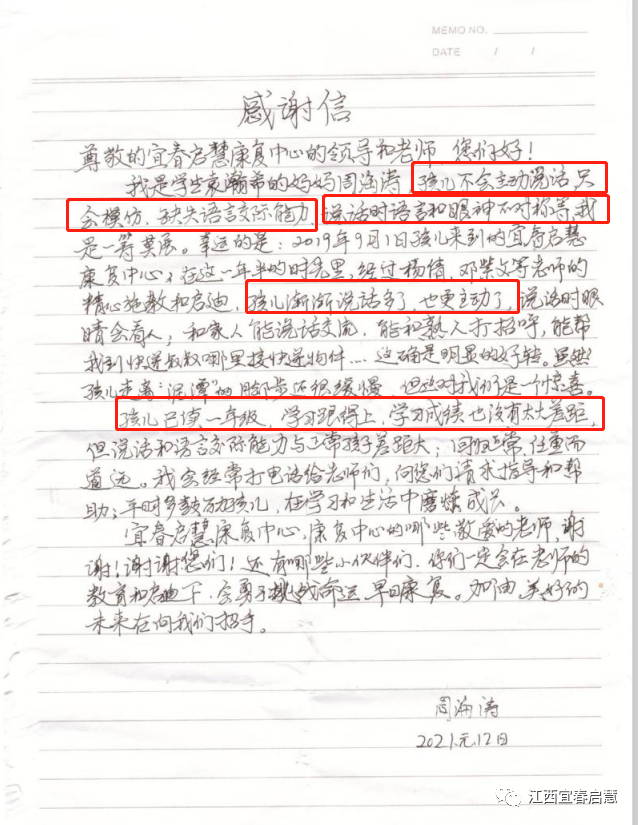 MEMO NO.
DATE / /
感谢信
尊敬的宜春启慧康复中心的领导和老师 您们好!
我是学生袁瀚希的妈妈周海涛, 孩儿不会主动说话,只
会模仿, 缺失语言交际能力, 说话时语言和眼神不对称等,我
是一筹莫展。幸运的是:2019年9月1日孩儿来到的宜春启慧
康复中心;在这一年半的时光里,经过杨倩,邓紫文等老师的
精心施教和启迪, 孩儿渐渐说话多了,也更主动了,说话时眼
睛会看人;和家人能说话交流,能和熟人打招呼,能帮
我到快递叔叔哪里接快递物件....这确是明显的好转。虽然
孩儿走着"泥潭"的脚步还很缓慢,但这对我们是一个惊喜。
孩儿已读一年级,学习跟得上,学习成绩也没有太大差距,
但说话和语言交际能力与正常孩子差距大;回归正常,任重而
道远。我会经常打电话给老师们,向您们请求指导和帮
助;平时多鼓励孩儿,在学习和生活中磨炼成长。
宜春启慧康复中心,康复中心的哪些敬爱的老师,谢
谢!谢谢您们!还有哪些小伙伴们,你们一定会在老师的
教育和启迪下,会勇于挑战命运,早日康复。加油,美好的
未来在向我们招手。
周海涛
2021.元.12日
江西宜春启慧